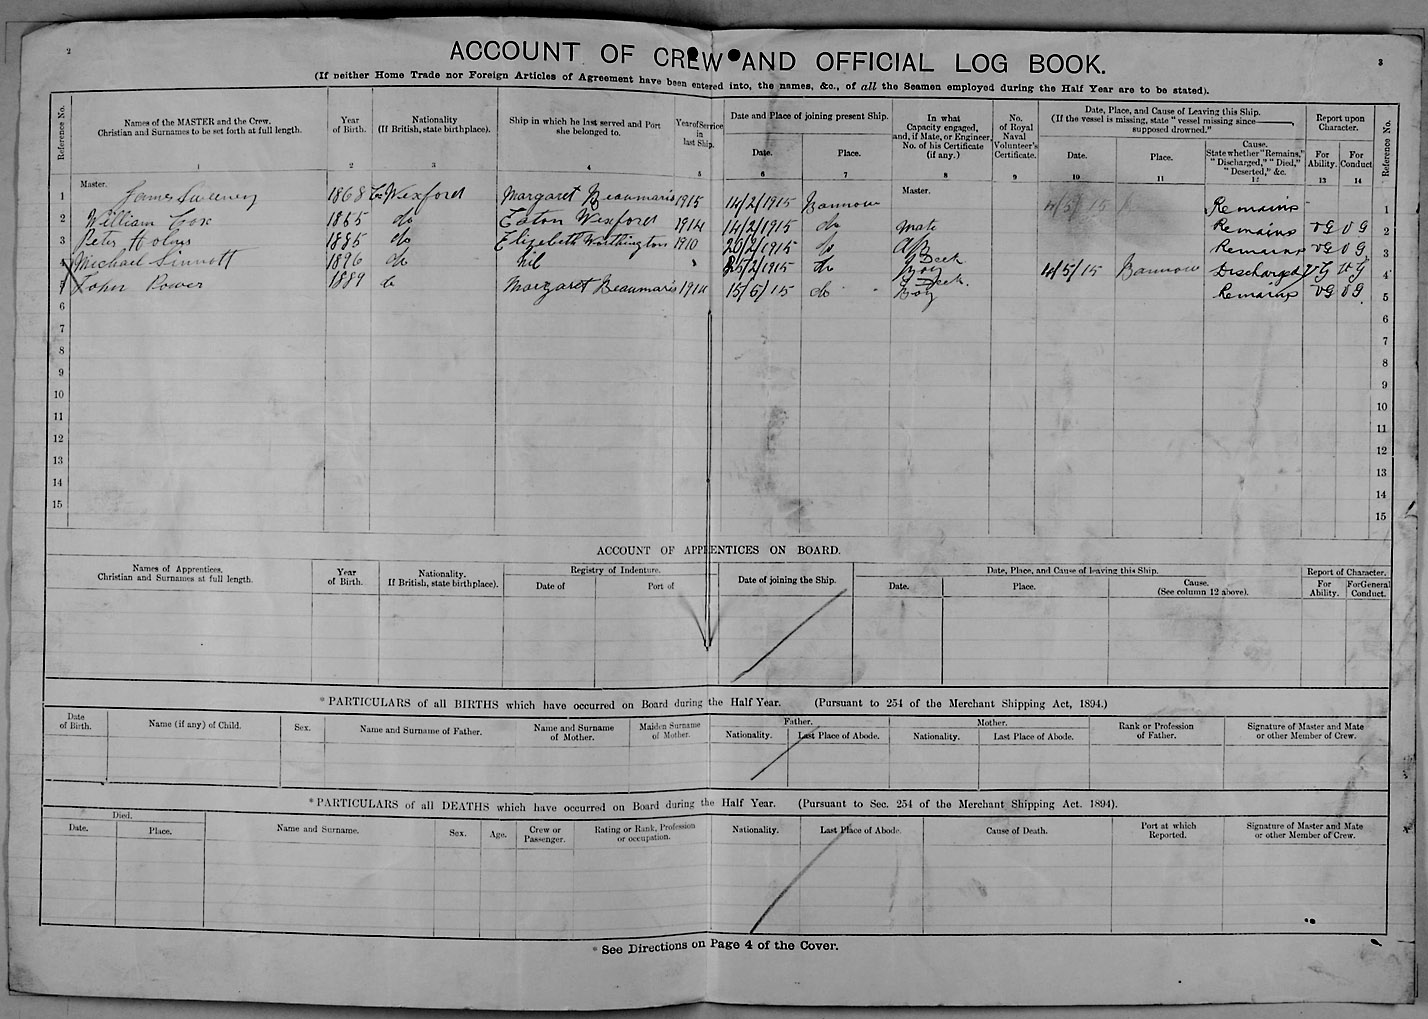 2
3
ACCOUNT OF CREW AND OFFICIAL LOG BOOK.
(If neither Home Trade nor Foreign Articles of Agreement have been entered into, the names, &c., of all the Seamen employed during the Half Year are to be stated).
Reference No. Names of the MASTER and the Crew. Christian and Surnames to be set forth at full length. Year of Birth. Nationality (If British, state birthplace). Ship in which he last served and Port she belonged to. Year of Service in last Ship. Date and Place of joining present Ship. Date. Place. In what Capacity engaged, and, if Mate, or Engineer, No. of his Certificate (if any.) No. of Royal Naval Volunteer's Certificate. Date, Place, and Cause of Leaving this Ship. (If the vessel is missing, state "vessel missing since ——, supposed drowned." Date. Place. Cause. State whether "Remains," "Discharged," "Died," "Deserted," &c. Report upon Character. For Ability. For Conduct Reference No.
1 2 3 4 5 6 7 8 9 10 11 12 13 14
Master. Master.
1 James Sweeney 1868 Co Wexford Margaret Beaumaris 1915 14/2/1915 Bannow 4/5/15 Remains 1
2 William Cox 1865 do Eaton Wexford 1914 14/2/1915 do Mate Remains VG VG 2
3 Peter Holms 1885 do Elizabeth Worthington 1910 20/2/1915 do AB Remains VG VG 3
4 Michael Sinnott 1896 do nil 25/2/1915 do Deck Boy 14/5/15 Bannow Discharged VG VG 4
5 John Power 1889 Margaret Beaumaris 1914 15/5/15 do Deck Boy Remains VG VG 5
6 6
7 7
8 8
9 9
10 10
11 11
12 12
13 13
14 14
15 15
ACCOUNT OF APPRENTICES ON BOARD.
Names of Apprentices. Christian and Surnames at full length. Year of Birth. Nationality. If British, state birthplace). Registry of Indenture. Date of Port of Date of joining the Ship. Date, Place, and Cause of leaving this Ship. Date. Place. Cause. (See column 12 above). Report of Character. For Ability. For General Conduct.
*PARTICULARS of all BIRTHS which have occurred on Board during the Half Year. (Pursuant to 254 of the Merchant Shipping Act, 1894.)
Date of Birth. Name (if any) of Child. Sex. Name and Surname of Father. Name and Surname of Mother. Maiden Surname of Mother. Father. Nationality. Last Place of Abode. Mother. Nationality. Last Place of Abode. Rank or Profession of Father. Signature of Master and Mate or other Member of Crew.
*PARTICULARS of all DEATHS which have occurred on Board during the Half Year. (Pursuant to Sec. 254 of the Merchant Shipping Act. 1894).
Died. Date. Place. Name and Surname. Sex. Age. Crew or Passenger. Rating or Rank, Profession or occupation. Nationality. Last Place of Abode. Cause of Death. Port at which Reported. Signature of Master and Mate or other Member of Crew.
* See Directions on Page 4 of the Cover.